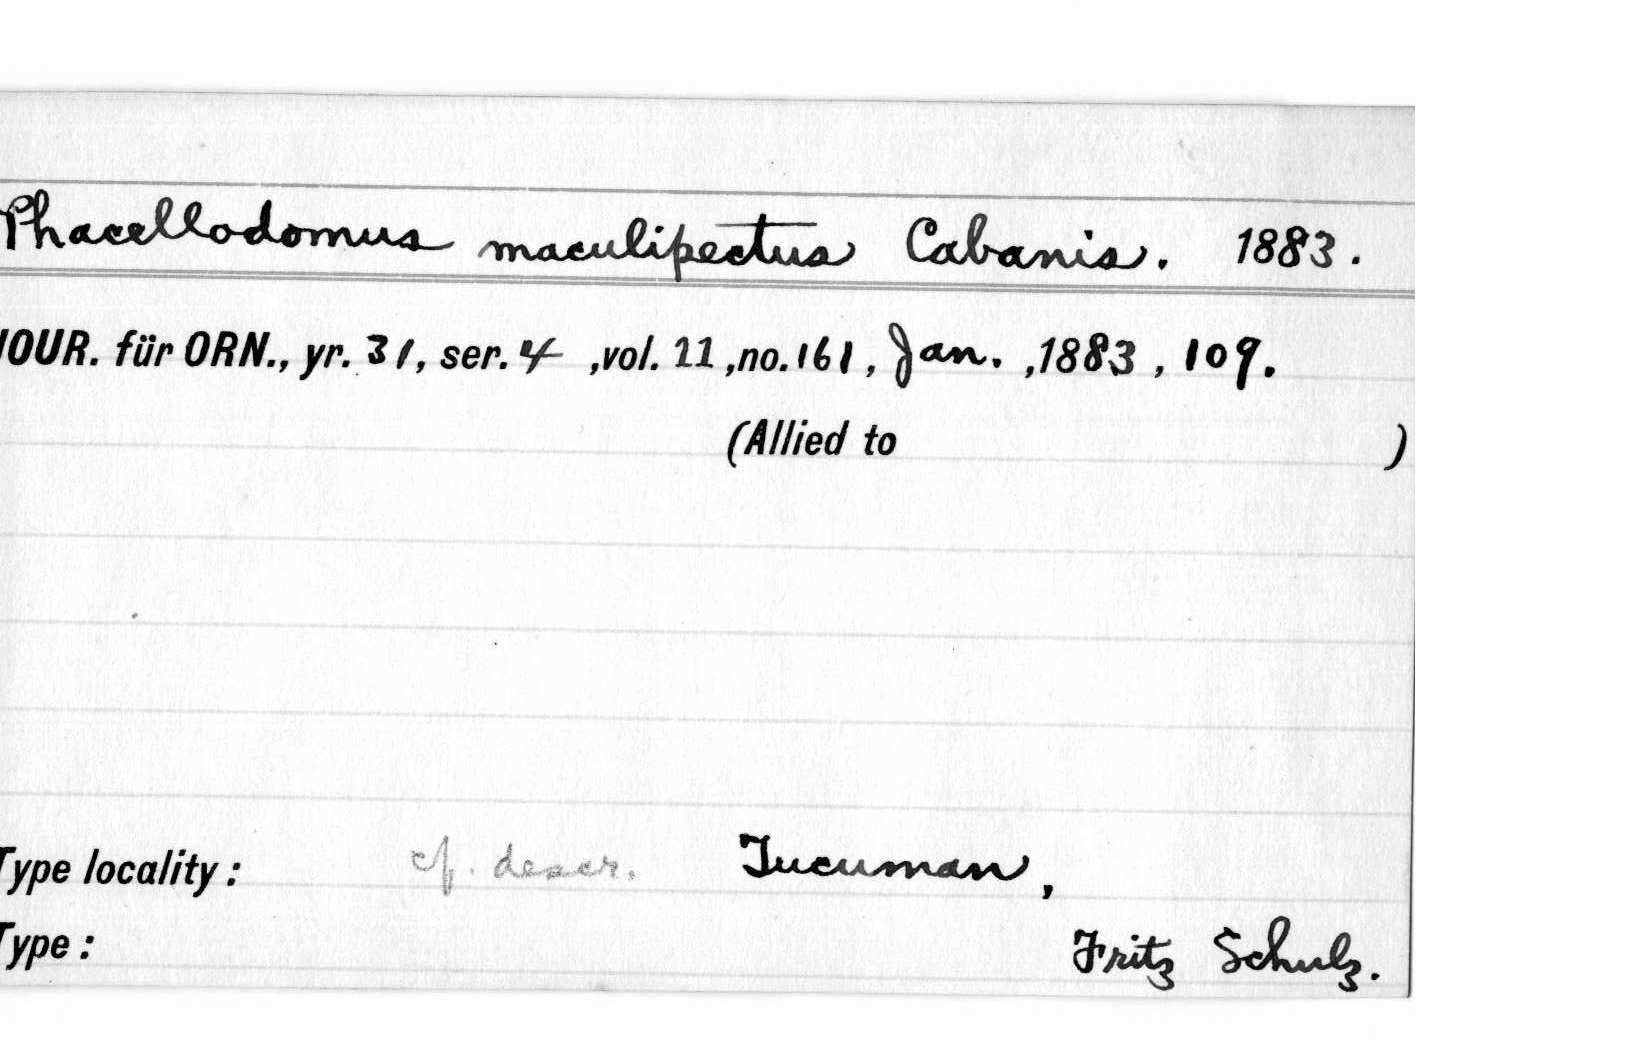 Phacellodomus maculipectus Cabanis. 1883.
JOUR. für ORN., yr. 31, ser. 4 ,vol. 11 ,no. 161 , Jan. ,1883 , 109.
(Allied to )
Type locality : cf. descr. Tucuman,
Type : Fritz Schulz.